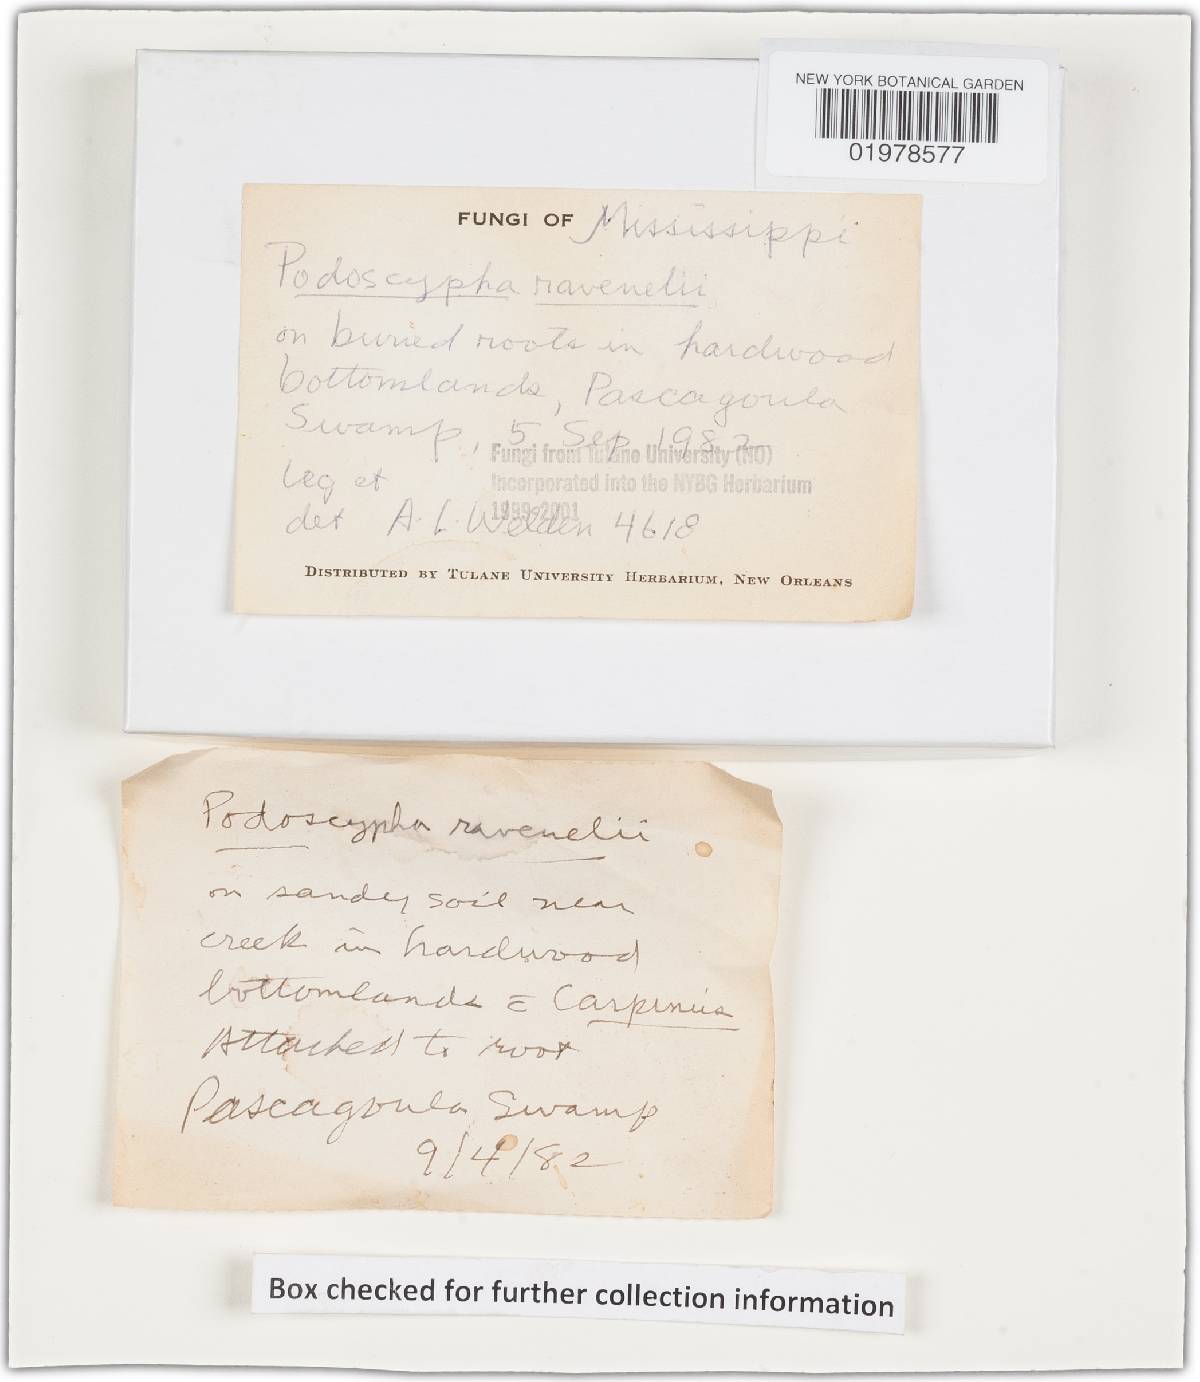 NEW YORK BOTANICAL GARDEN
01978577
FUNGI OF Mississippi
Podoscypha ravenelii
on buried roots in hardwood
bottomlands, Pascagoula
Swamp, 5 Sep 1982
Fungi from Tulane University (NO)
Incorporated into the NYBG Herbarium
1999-2001
leg et
det A. L. Welden 4618
DISTRIBUTED BY TULANE UNIVERSITY HERBARIUM, NEW ORLEANS
Podoscypha ravenelii
on sandy soil near
creek in hardwood
bottomlands c̄ Carpinus
Attached to root
Pascagoula Swamp
9/4/82
Box checked for further collection information